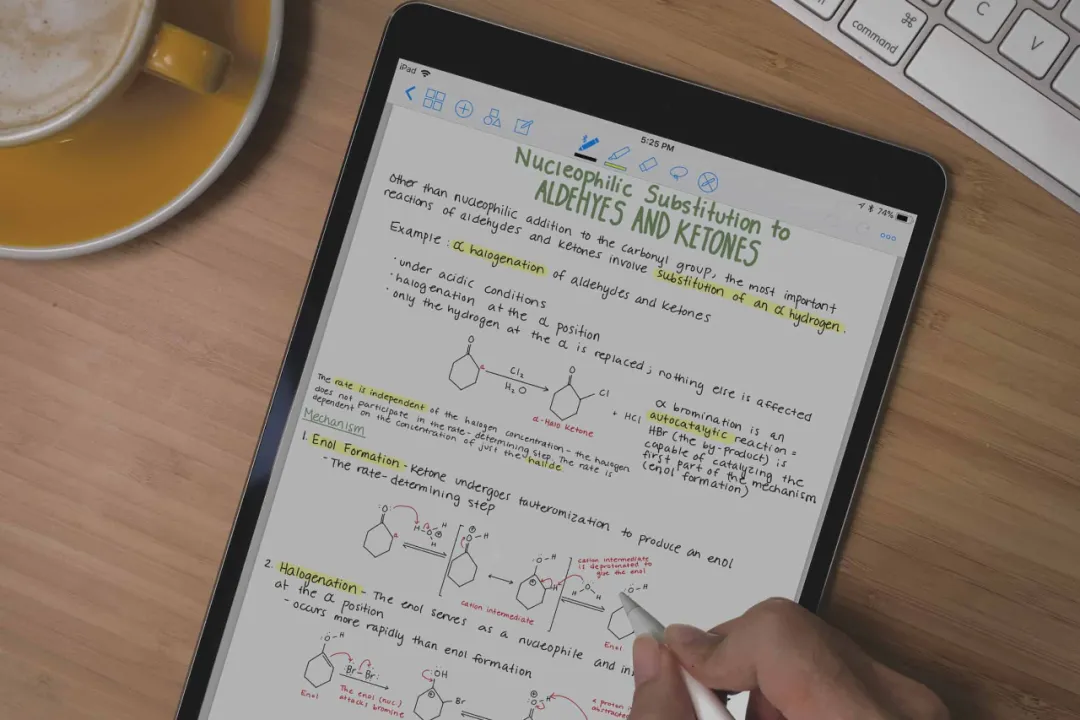 command
⌘
C
V
iPad
5:25 PM
74%
Nucleophilic Substitution to
ALDEHYES AND KETONES
Other than nucleophilic addition to the carbonyl group, the most important
reactions of aldehydes and ketones involve substitution of an α hydrogen.
Example: α halogenation of aldehydes and ketones
· under acidic conditions
· halogenation at the α position
· only the hydrogen at the α is replaced; nothing else is affected
O
α
Cl₂
H₂O
O
Cl
+ HCl
α-Halo Ketone
α bromination is an
autocatalytic reaction =
HBr (the by-product) is
capable of catalyzing the
first part of the mechanism
(enol formation)
The rate is independent of the halogen concentration - the halogen
does not participate in the rate-determining step. The rate is
dependent on the concentration of just the halide.
Mechanism
1. Enol Formation - Ketone undergoes tauteromization to produce an enol
- The rate-determining step
cation intermediate
cation intermediate
is deprotonated to
give the enol
Enol
2. Halogenation - The enol serves as a nucleophile and
at the α position
- occurs more rapidly than enol formation
:Ö-H
Enol
:Br-Br:
The enol (nuc.)
attacks bromine
:OH
Br